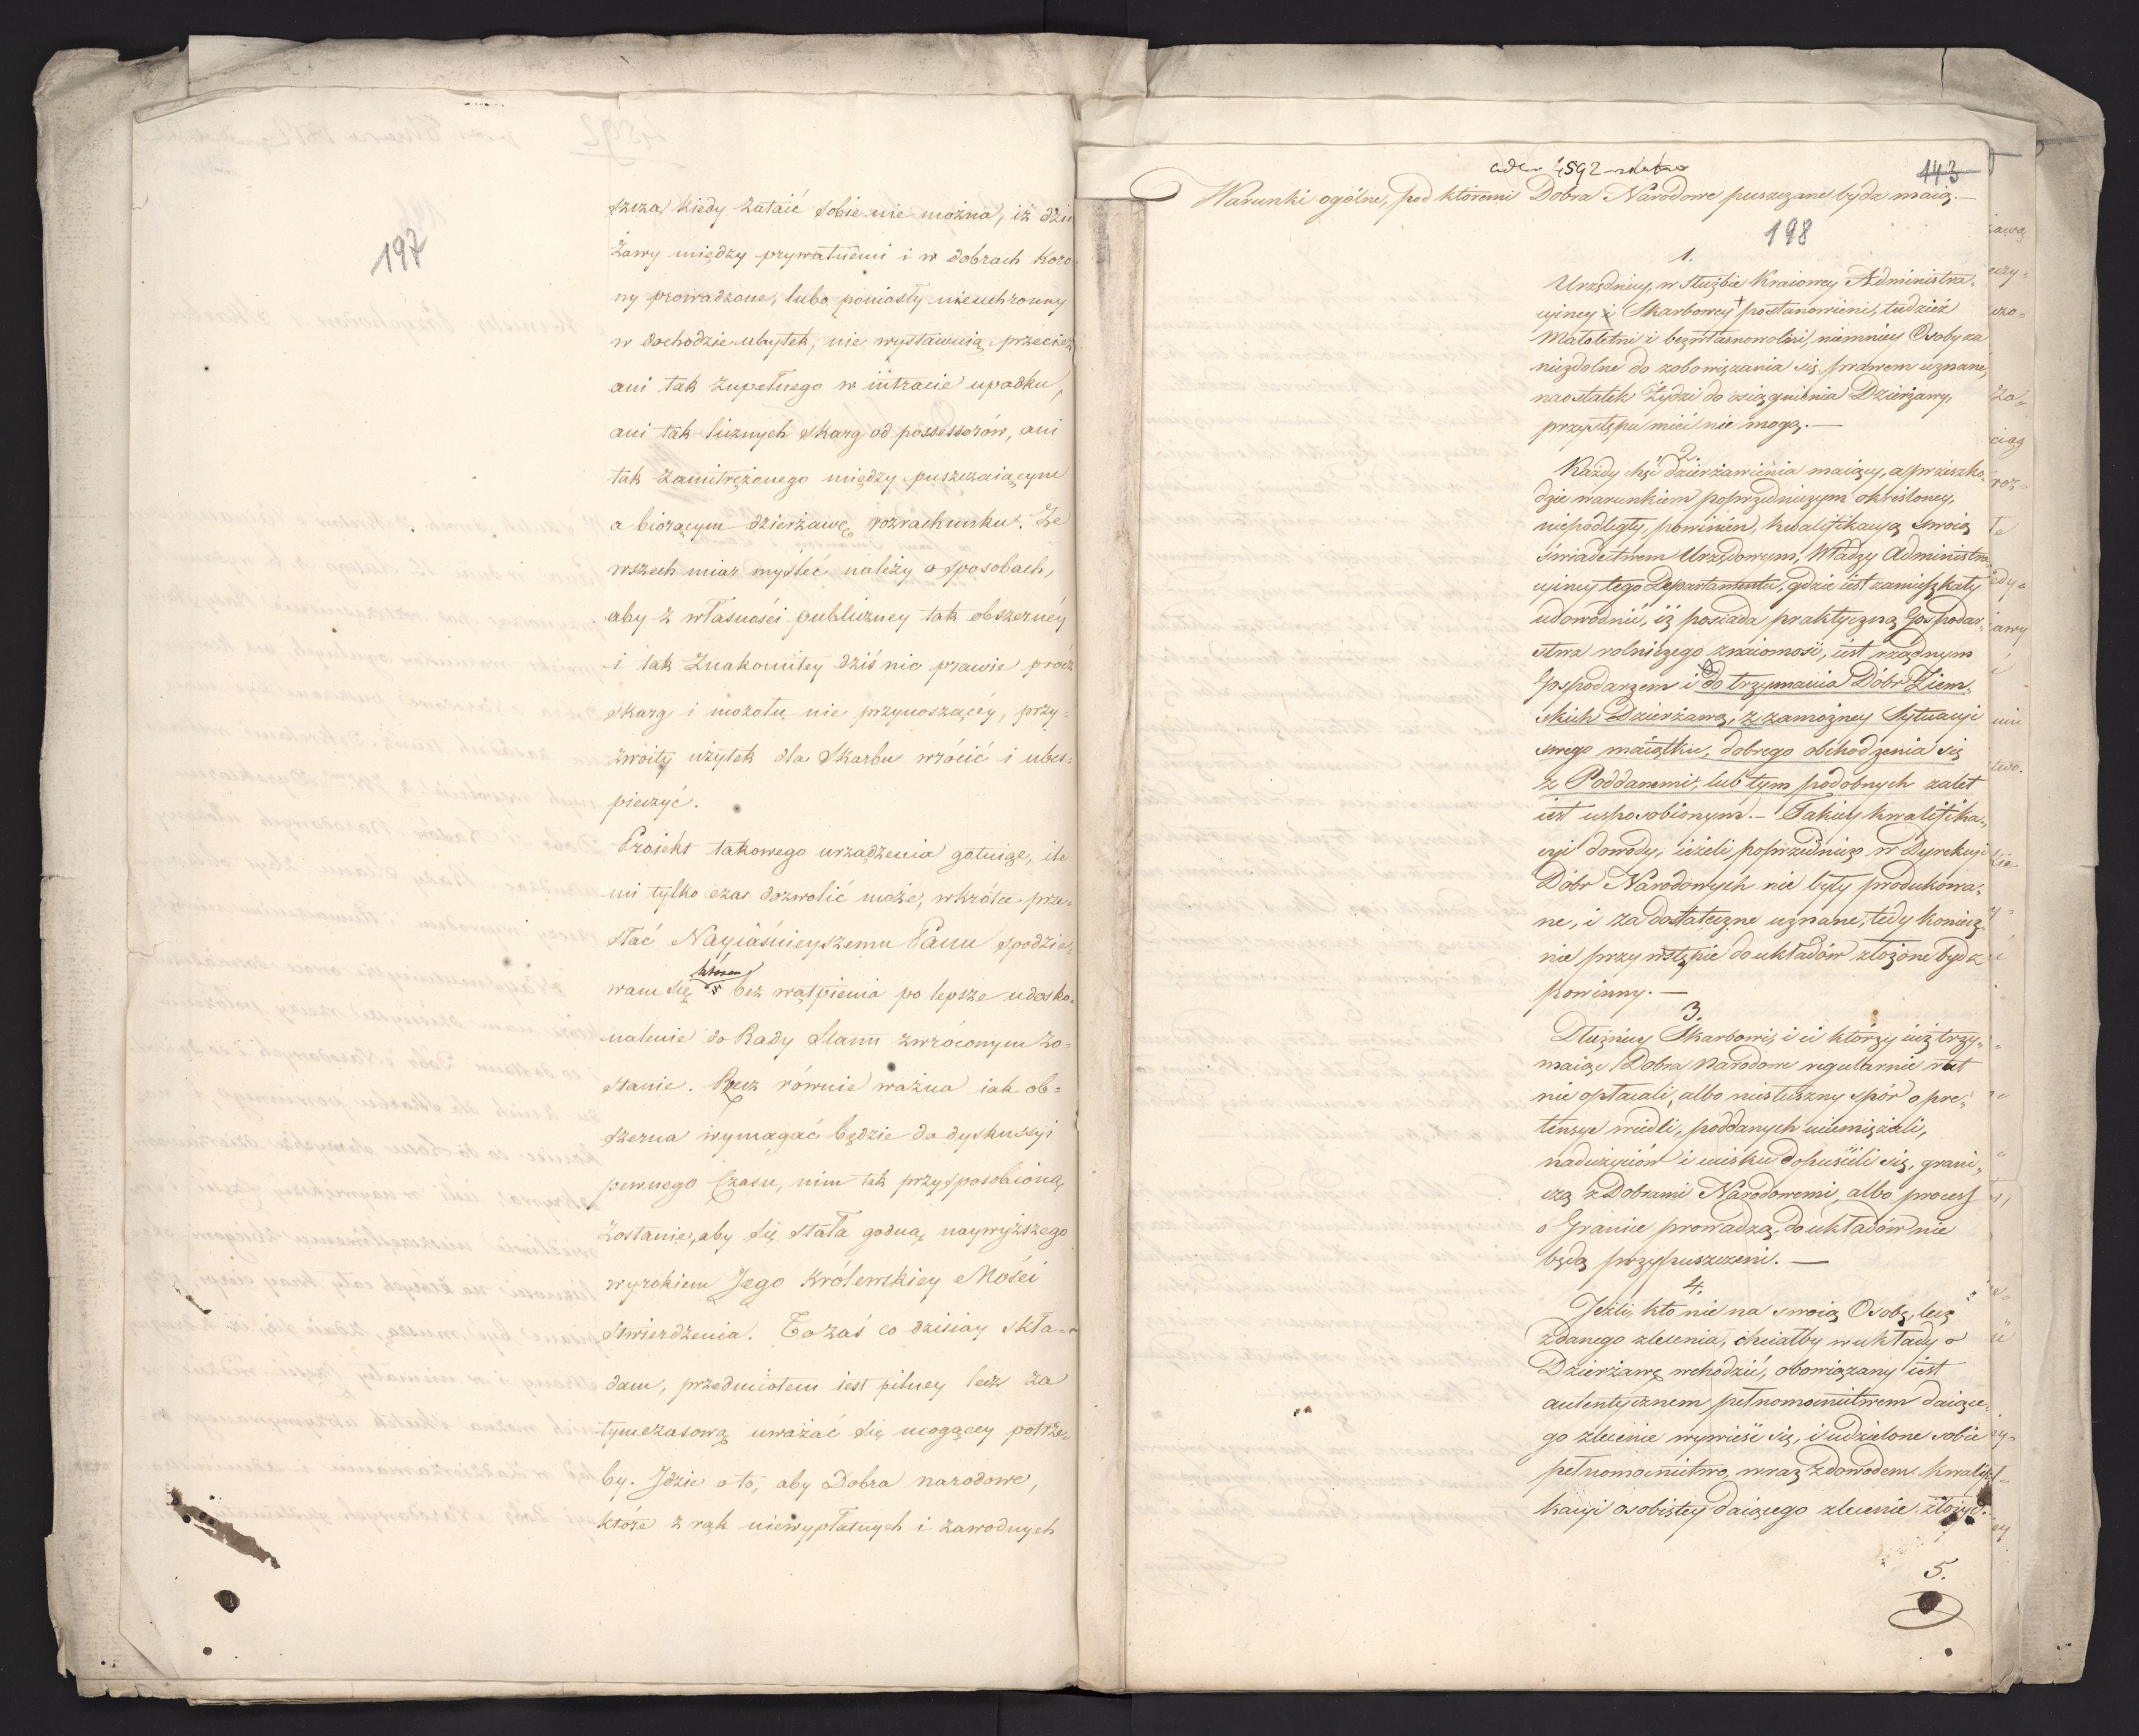 197
szcza, kiedy zataić sobie nie można, iż dzie
żawy między prywatnemi i w dobrach Koro
ny prowadzone, lubo poniosły nieuchronny
w dochodzie ubytek, nie wystawuią przecież
ani tak zupełnego w intracie upadku,
ani tak licznych skarg od possessorów, ani
tak zamitrężonego między puszczaiącym
a biorącym dzierżawę rozrachunku. Ze
wszech miar myśleć należy o sposobach,
aby z własności publiczney tak obszerney
i tak znakomitey dziś nic prawie prócz
skarg i mozołu nie przynoszącéy, przy=
zwoity użytek dla Skarbu wrócić i ubes=
pieczyć.
Proiekt takowego urządzenia gotuiąc, ile
mi tylko czas dozwolić może, wkrótce prze=
słać Nayiaśnieyszemu Panu spodzie=
wam się bez wątpienia po lepsze udosko=
nalenie do Rady Stanu zwróconym zo=
stanie. Rzecz równie ważna iak ob=
szerna wymagać będzie do dyskussyi
pewnego czasu, nim tak przysposobioną
zostanie, aby się stała godną naywyższego
wyrokiem Jego Królewskiey Mości
stwierdzenia. To zaś co dzisiay skła=
dam, przedmiotem iest pilney lecz za
tymczasową uważać się mogącey potrze=
by. Jdzie o to, aby Dobra narodowe,
które z rąk niewypłatnych i zawodnych
4592
143
Warunki ogólne, pod któremi Dobra Narodowe puszczane bydź maią.—
198
1.
Urzędnicy, w służbie Kraiowey Administra=
cyiney i Skarbowey postanowieni, tudzież
Małoletni i bezwłasnowolni, niemniey Osoby za
niezdolne do zobowiązania się prawem uznane,
naostatek Żydzi do osiągnienia Dzierżawy,
przystępu mieć nie mogą.—
2.
Każdy chęć dzierżawienia maiący, a przeszko=
dzie warunkiem poprzedniczym określoney,
niepodległy, powinien, kwalifikacyą swoią
świadectwem Urzędowym, Władzy Administra=
cyiney tego Departamentu, gdzie iest zamieszkały
udowodnić, iż posiada praktyczną Gospodar=
stwa rolniczego znaiomość, iest rządnym
Gospodarzem i do trzymania Dóbr Ziem=
skich Dzierżawą, z zamożney Sytuacyi
swego maiątku, dobrego obchodzenia się
z Poddanemi, lub tym podobnych zalet
iest usposobionym.— Takiey kwalifika=
cyi dowody, ieżeli poprzedniczo w Dyrekcyi
Dóbr Narodowych nie były produkowa=
ne, i za dostateczne uznane, tedy koniecz=
nie przy wstępie do układów złożone bydź
powinny.—
3.
Dłużnicy Skarbowi, i ci którzy iuż trzy=
maiąc Dobra Narodowe regularnie rat
nie opłacali, albo niesłuszny spór o pre=
tensye wiedli, poddanych uciemiężali,
nadużyciów i ucisku dopuścili się, grani=
czą z Dobrami Narodowemi, albo process
o Granice prowadzą, do układów nie
będą przypuszczeni.—
4.
Jeżli, kto nie na swoią Osobę, lecz
z danego zlecenia, chciałby w układy o
Dzierżawę wchodzić, obowiązany iest
autentycznem pełnomocnictwem daiące=
go zlecenie wywieść się, i udzielone sobie
pełnomocnictwo, wraz z dowodem kwalifi=
kacyi osobistey daiącego zlecenie złożyć.
5.